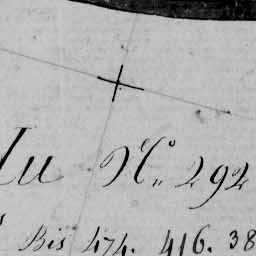 du N.º 292
Bis 474. 416. 38